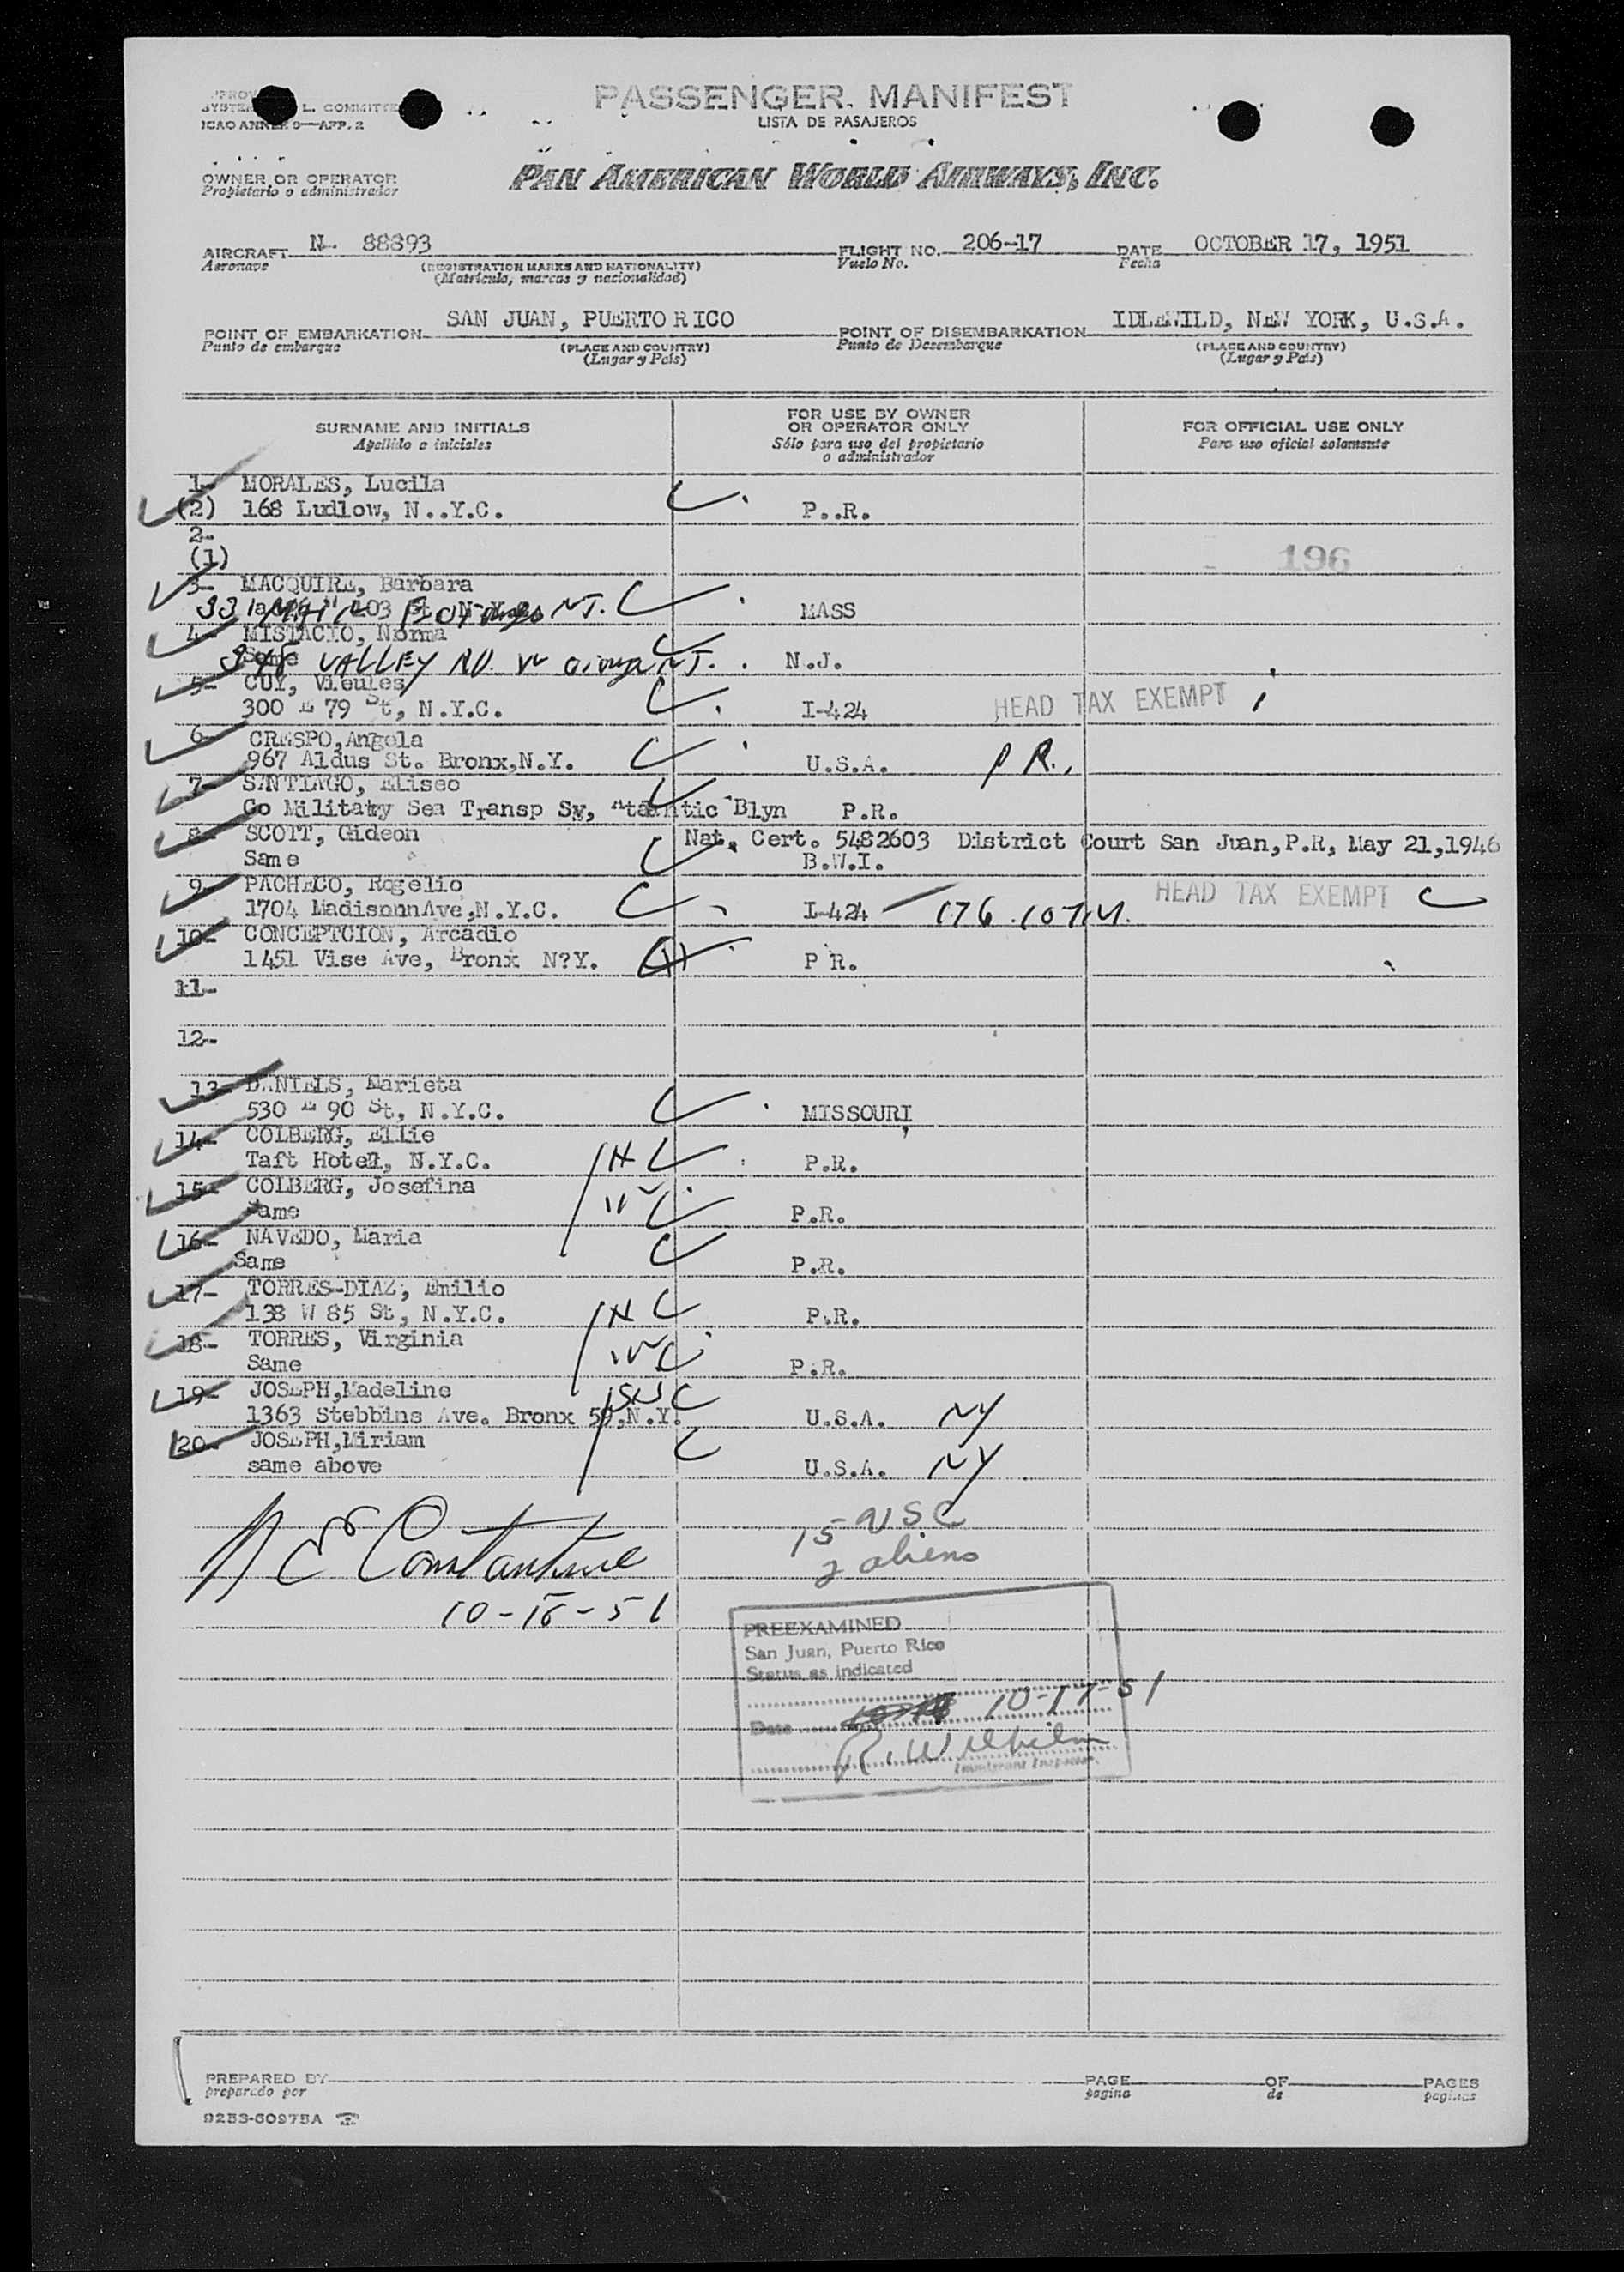 L. COMMITTE
ICAO ANNEX 9—APP. 2
PASSENGER MANIFEST
LISTA DE PASAJEROS
OWNER OR OPERATOR
Propietario o administrador
PAN AMERICAN WORLD AIRWAYS, INC.
AIRCRAFT N- 88893 FLIGHT NO. 206-17 DATE OCTOBER 17, 1951
Aeronave (REGISTRATION MARKS AND NATIONALITY) Vuelo No. Fecha
(Matrícula, marcas y nacionalidad)
POINT OF EMBARKATION SAN JUAN, PUERTO RICO POINT OF DISEMBARKATION IDLEWILD, NEW YORK, U.S.A.
Punto de embarque (PLACE AND COUNTRY) Punto de Desembarque (PLACE AND COUNTRY)
(Lugar y País) (Lugar y País)
SURNAME AND INITIALS FOR USE BY OWNER OR OPERATOR ONLY FOR OFFICIAL USE ONLY
Apellido e iniciales Sólo para uso del propietario o administrador Para uso oficial solamente
1- MORALES, Lucila
(2) 168 Ludlow, N..Y.C. P..R.
2-
(1) 196
3- MACQUIRE, Barbara
MASS
4- MISTACIO, Norma
Same VALLEY RD. N.J. N.J.
5- CUY, Vieules
300 E 79 St, N.Y.C. I-424 HEAD TAX EXEMPT
6- CRESPO,Angela
967 Aldus St. Bronx,N.Y. U.S.A. P.R.
7- SANTIAGO, Eliseo
Co Militaty Sea Transp Sv, Blyn P.R.
8- SCOTT, Gideon Nat. Cert. 5482603 District Court San Juan,P.R, May 21,1946
Same B.W.I.
9- PACHECO, Rogelio HEAD TAX EXEMPT
1704 MadisonnAve,N.Y.C. I-424
10- CONCEPTCION, Arcadio
1451 Vise Ave, Bronx N?Y. P R.
11-
12-
13- DANIELS, Marieta
530 E 90 St, N.Y.C. MISSOURI
14- COLBERG, Ellie
Taft Hotel, N.Y.C. H P.R.
15- COLBERG, Josefina
Same W P.R.
16- NAVEDO, Maria
Same P.R.
17- TORRES-DIAZ, Emilio
138 W 85 St, N.Y.C. H P.R.
18- TORRES, Virginia
Same W P.R.
19- JOSEPH,Madeline
1363 Stebbins Ave. Bronx 59,N.Y. U.S.A. NY
20- JOSEPH,Miriam
same above U.S.A. NY
15 USC
2 aliens
Constantine
10-16-51
PREEXAMINED
San Juan, Puerto Rico
Status as indicated
Date 10-17-51
R. Wilhelm
Immigrant Inspector.
PREPARED BY PAGE OF PAGES
preparado por pagina de paginas
9253-60975A